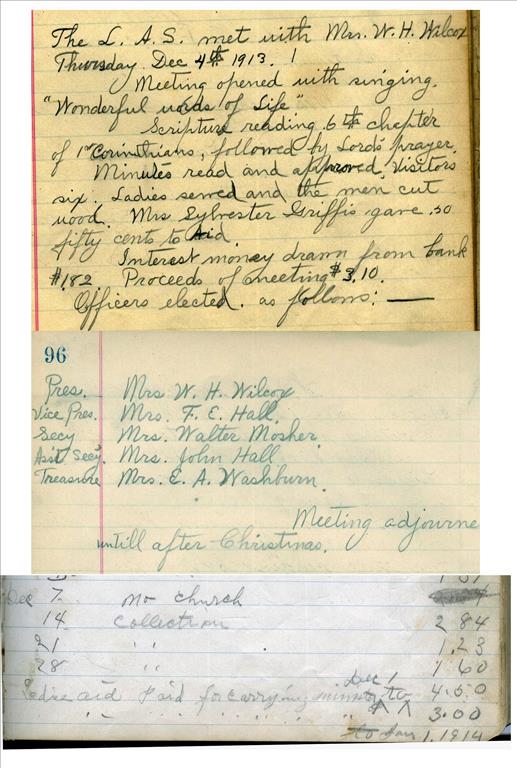 The L. A. S. met with Mrs. W. H. Wilcox
Thursday. Dec 4th 1913.
Meeting opened with singing.
"Wonderful words of Life"
Scripture reading 6th chapter
of 1st Corinthians, followed by Lord's prayer.
Minutes read and approved, Visitors
six. Ladies sewed and the men cut
wood. Mrs Sylvester Griffis gave .50
fifty cents to Aid.
Interest money drawn from bank
$1.82. Proceeds of meeting $3.10.
Officers elected. as follows: —
96
Pres. Mrs W. H. Wilcox
Vice Pres. Mrs. F. E. Hall.
Secy Mrs. Walter Mosher.
Ass't Secy. Mrs. John Hall
Treasure Mrs. E. A. Washburn.
Meeting adjourne
untill after Christmas.
Dec 7 no church
14 Collection 2 84
21 " 1.23
28 " 1.60
Ladie aid Paid for carrying to Dec 1 4.50
" " " " " " 3.00
to Jan 1. 1914